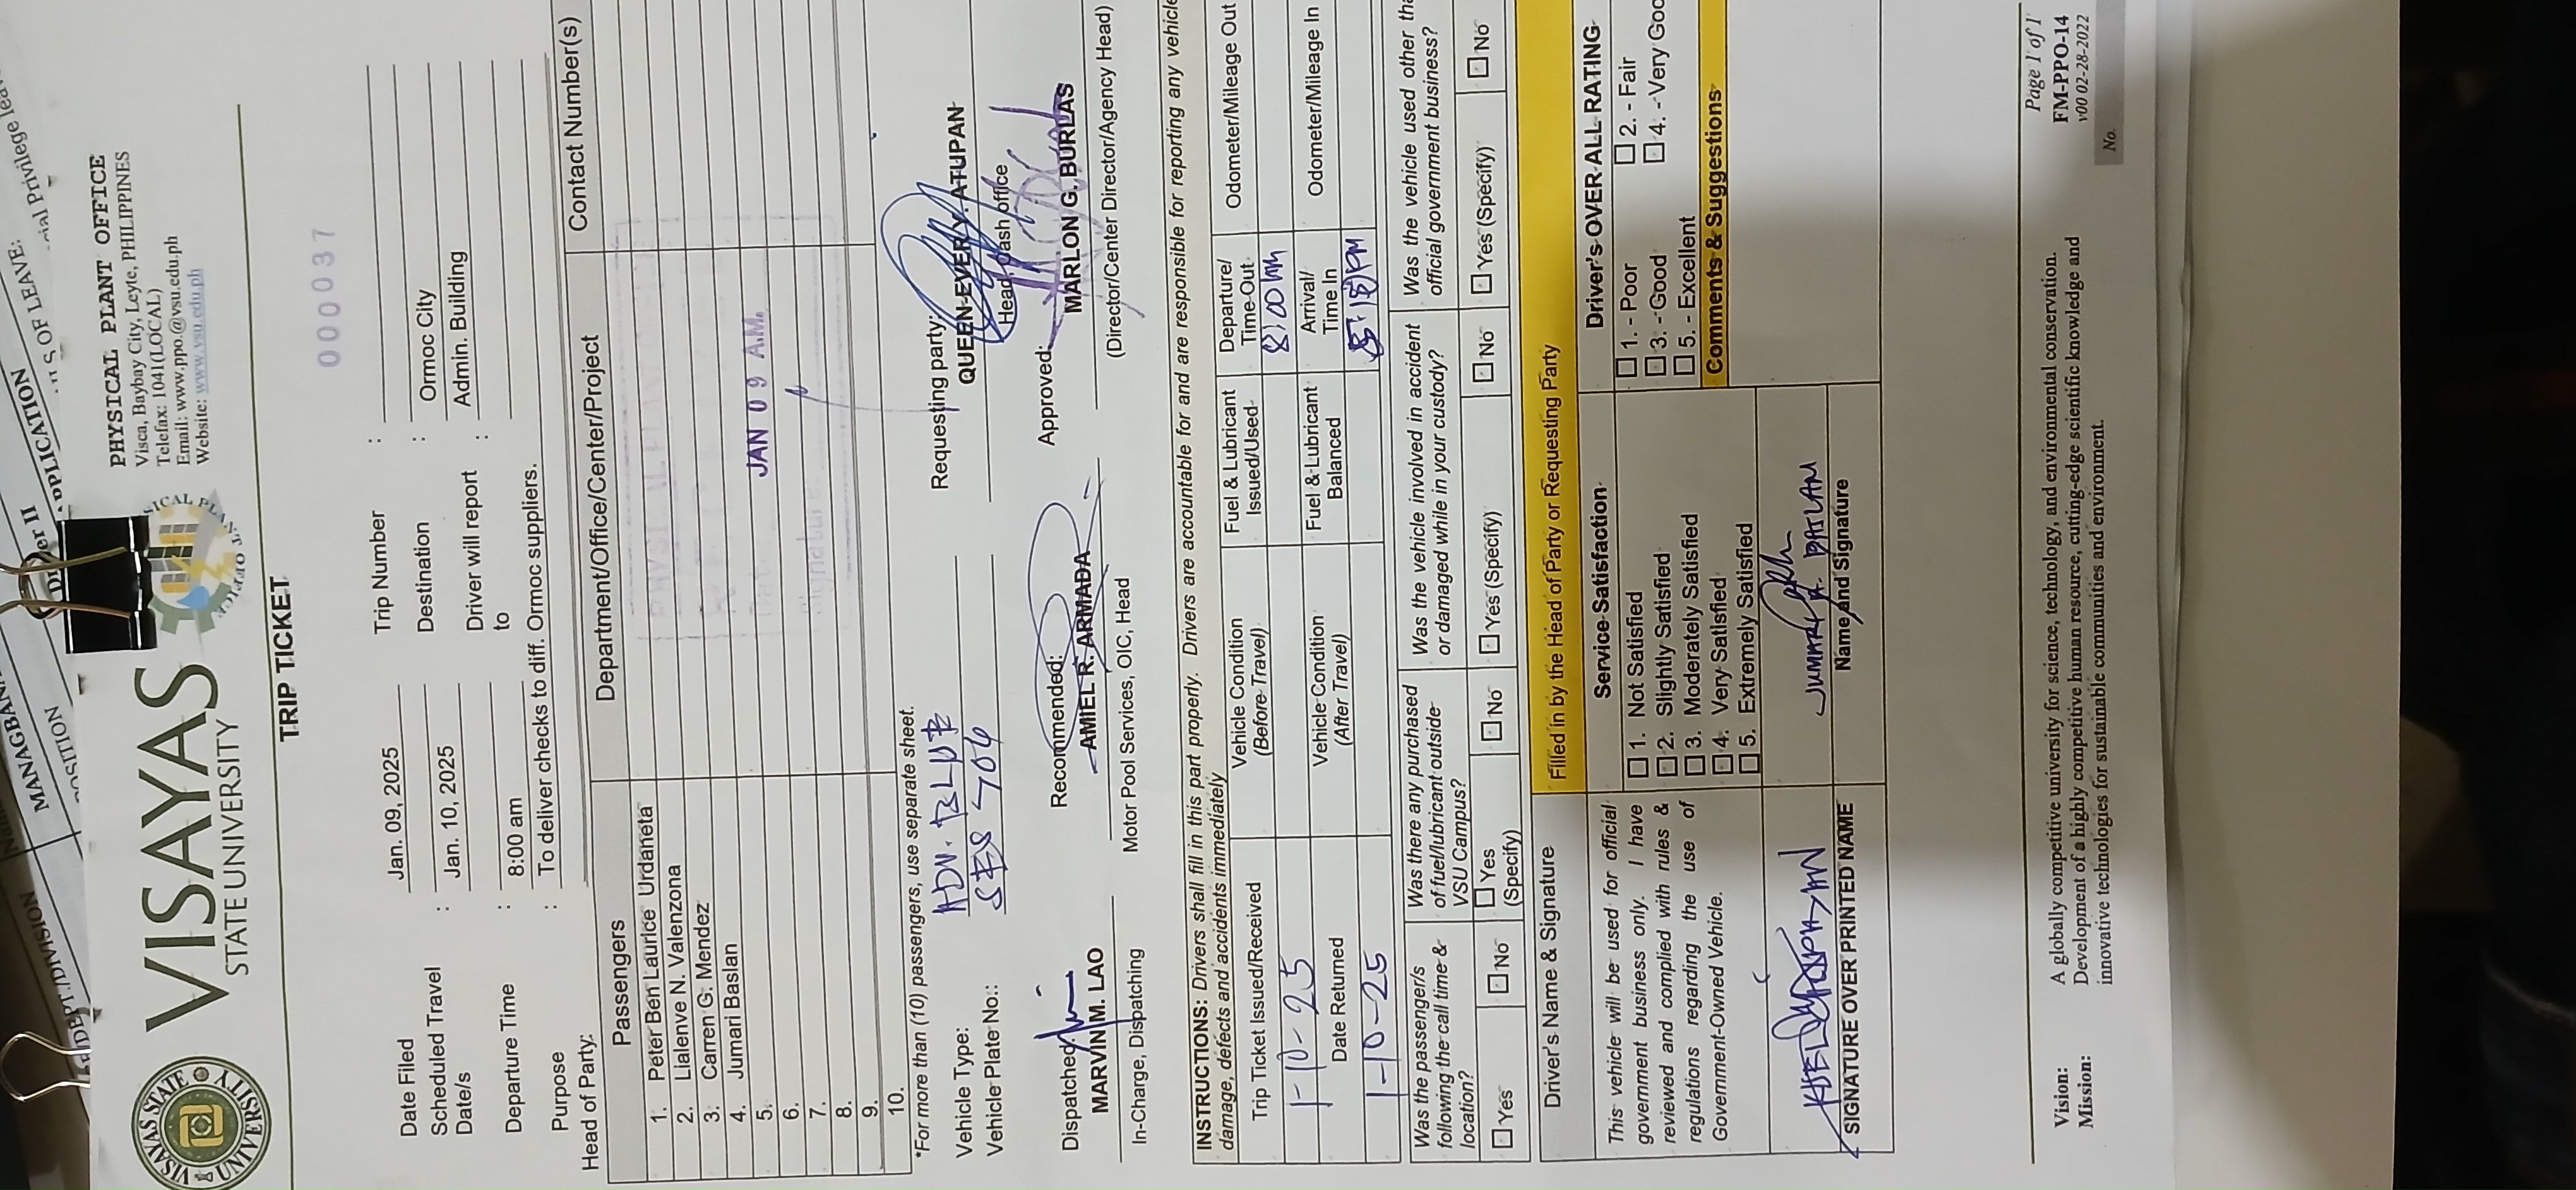 MANAGBAN
DEPT./DIVISION
POSITION
Driver II
APPLICATION
OF LEAVE:
cial Privilege leav
VISAYAS STATE UNIVERSITY
VISAYAS
STATE UNIVERSITY
PHYSICAL PLANT OFFICE
Visca, Baybay City, Leyte, PHILIPPINES
Telefax: 1041(LOCAL)
Email: www.ppo.@vsu.edu.ph
Website: www.vsu.edu.ph
TRIP TICKET
000037
Date Filed Jan. 09, 2025 Trip Number :
Scheduled Travel Date/s : Jan. 10, 2025 Destination : Ormoc City
Departure Time : 8:00 am Driver will report to : Admin. Building
Purpose : To deliver checks to diff. Ormoc suppliers.
Head of Party:
Passengers Department/Office/Center/Project Contact Number(s)
1. Peter Ben Laurice Urdaneta
2. Lialenve N. Valenzona
3. Carren G. Mendez
4. Jumari Baslan
5. JAN 09 A.M.
6.
7.
8.
9.
10.
*For more than (10) passengers, use separate sheet.
Vehicle Type: ADV. BLUE
Vehicle Plate No.: SFS 704
Requesting party:
QUEEN-EVER Y. ATUPAN
Head, cash office
Dispatched:
MARVIN M. LAO
In-Charge, Dispatching
Recommended:
AMIEL R. ARMADA
Motor Pool Services, OIC, Head
Approved:
MARLON G. BURLAS
(Director/Center Director/Agency Head)
INSTRUCTIONS: Drivers shall fill in this part properly. Drivers are accountable for and are responsible for reporting any vehicle
damage, defects and accidents immediately
Trip Ticket Issued/Received Vehicle Condition (Before Travel) Fuel & Lubricant Issued/Used Departure/ Time Out Odometer/Mileage Out
1-10-25 8:00 AM
Date Returned Vehicle Condition (After Travel) Fuel & Lubricant Balanced Arrival/ Time In Odometer/Mileage In
1-10-25 5:15 PM
Was the passenger/s following the call time & location?
Yes No
Was there any purchased of fuel/lubricant outside VSU Campus?
Yes (Specify) No
Was the vehicle involved in accident or damaged while in your custody?
Yes (Specify) No
Was the vehicle used other tha
official government business?
Yes (Specify) No
Driver's Name & Signature
Filled in by the Head of Party or Requesting Party
This vehicle will be used for official
government business only. I have
reviewed and complied with rules &
regulations regarding the use of
Government-Owned Vehicle.
SIGNATURE OVER PRINTED NAME
Service Satisfaction
1. Not Satisfied
2. Slightly Satisfied
3. Moderately Satisfied
4. Very Satisfied
5. Extremely Satisfied
JUMARI A. BATLAN
Name and Signature
Driver's OVER-ALL RATING
1. - Poor 2. - Fair
3. - Good 4. - Very Goo
5. - Excellent
Comments & Suggestions
Vision: A globally competitive university for science, technology, and environmental conservation.
Mission: Development of a highly competitive human resource, cutting-edge scientific knowledge and
innovative technologies for sustainable communities and environment.
Page 1 of 1
FM-PPO-14
v00 02-28-2022
No.